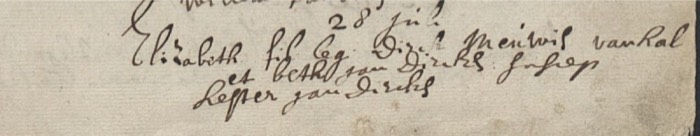 28 jul.
Elizabeth fil leg Dirck Meúwis van hal
et beth jan Dircks
Hester jan Dircks